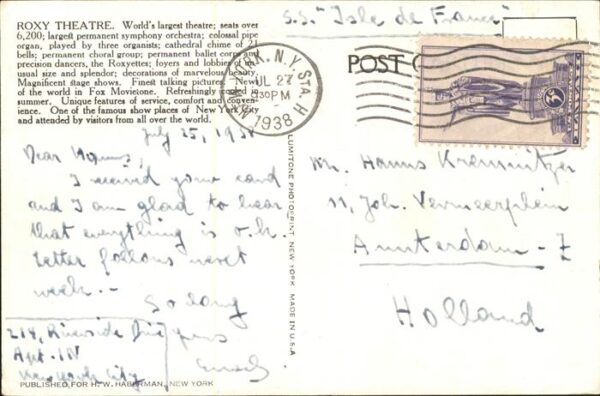 ROXY THEATRE. World's largest theatre; seats over
6,200; largest permanent symphony orchestra; colossal pipe
organ, played by three organists; cathedral chime of 21
bells; permanent choral group; permanent ballet corps and
precision dancers, the Roxyettes; foyers and lobbies of un-
usual size and splendor; decorations of marvelous beauty.
Magnificent stage shows. Finest talking pictures. News
of the world in Fox Movietone. Refreshingly cooled in
summer. Unique features of service, comfort and conven-
ience. One of the famous show places of New York City
and attended by visitors from all over the world.
July 25, 1938
Dear Hanns,
I received your card
and I am glad to hear
that everything is o.k.
Letter follows next
week. -
So long
yours
218, Riverside Drive
Apt. 1N
New York City
PUBLISHED FOR H. W. HABERMAN, NEW YORK
LUMITONE PHOTOPRINT, NEW YORK MADE IN U.S.A
S.S. "Isle de France"
POST
NEW YORK, N.Y. STA. H
JUL 27
830PM
1938
Mr. Hanns Kremnitzer
11, Joh. Vermeerplein
Amsterdam - Z
Holland